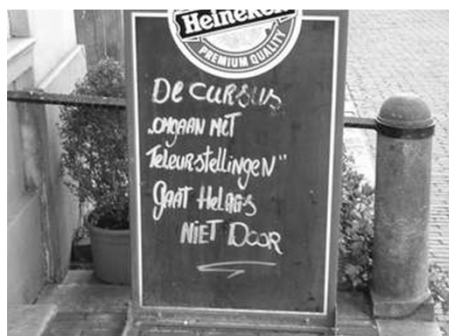 Heineken
PREMIUM QUALITY
De CURSUS
„OMGAAN MET
Teleurstellingen"
GAAT HelAAS
NIET DOOR